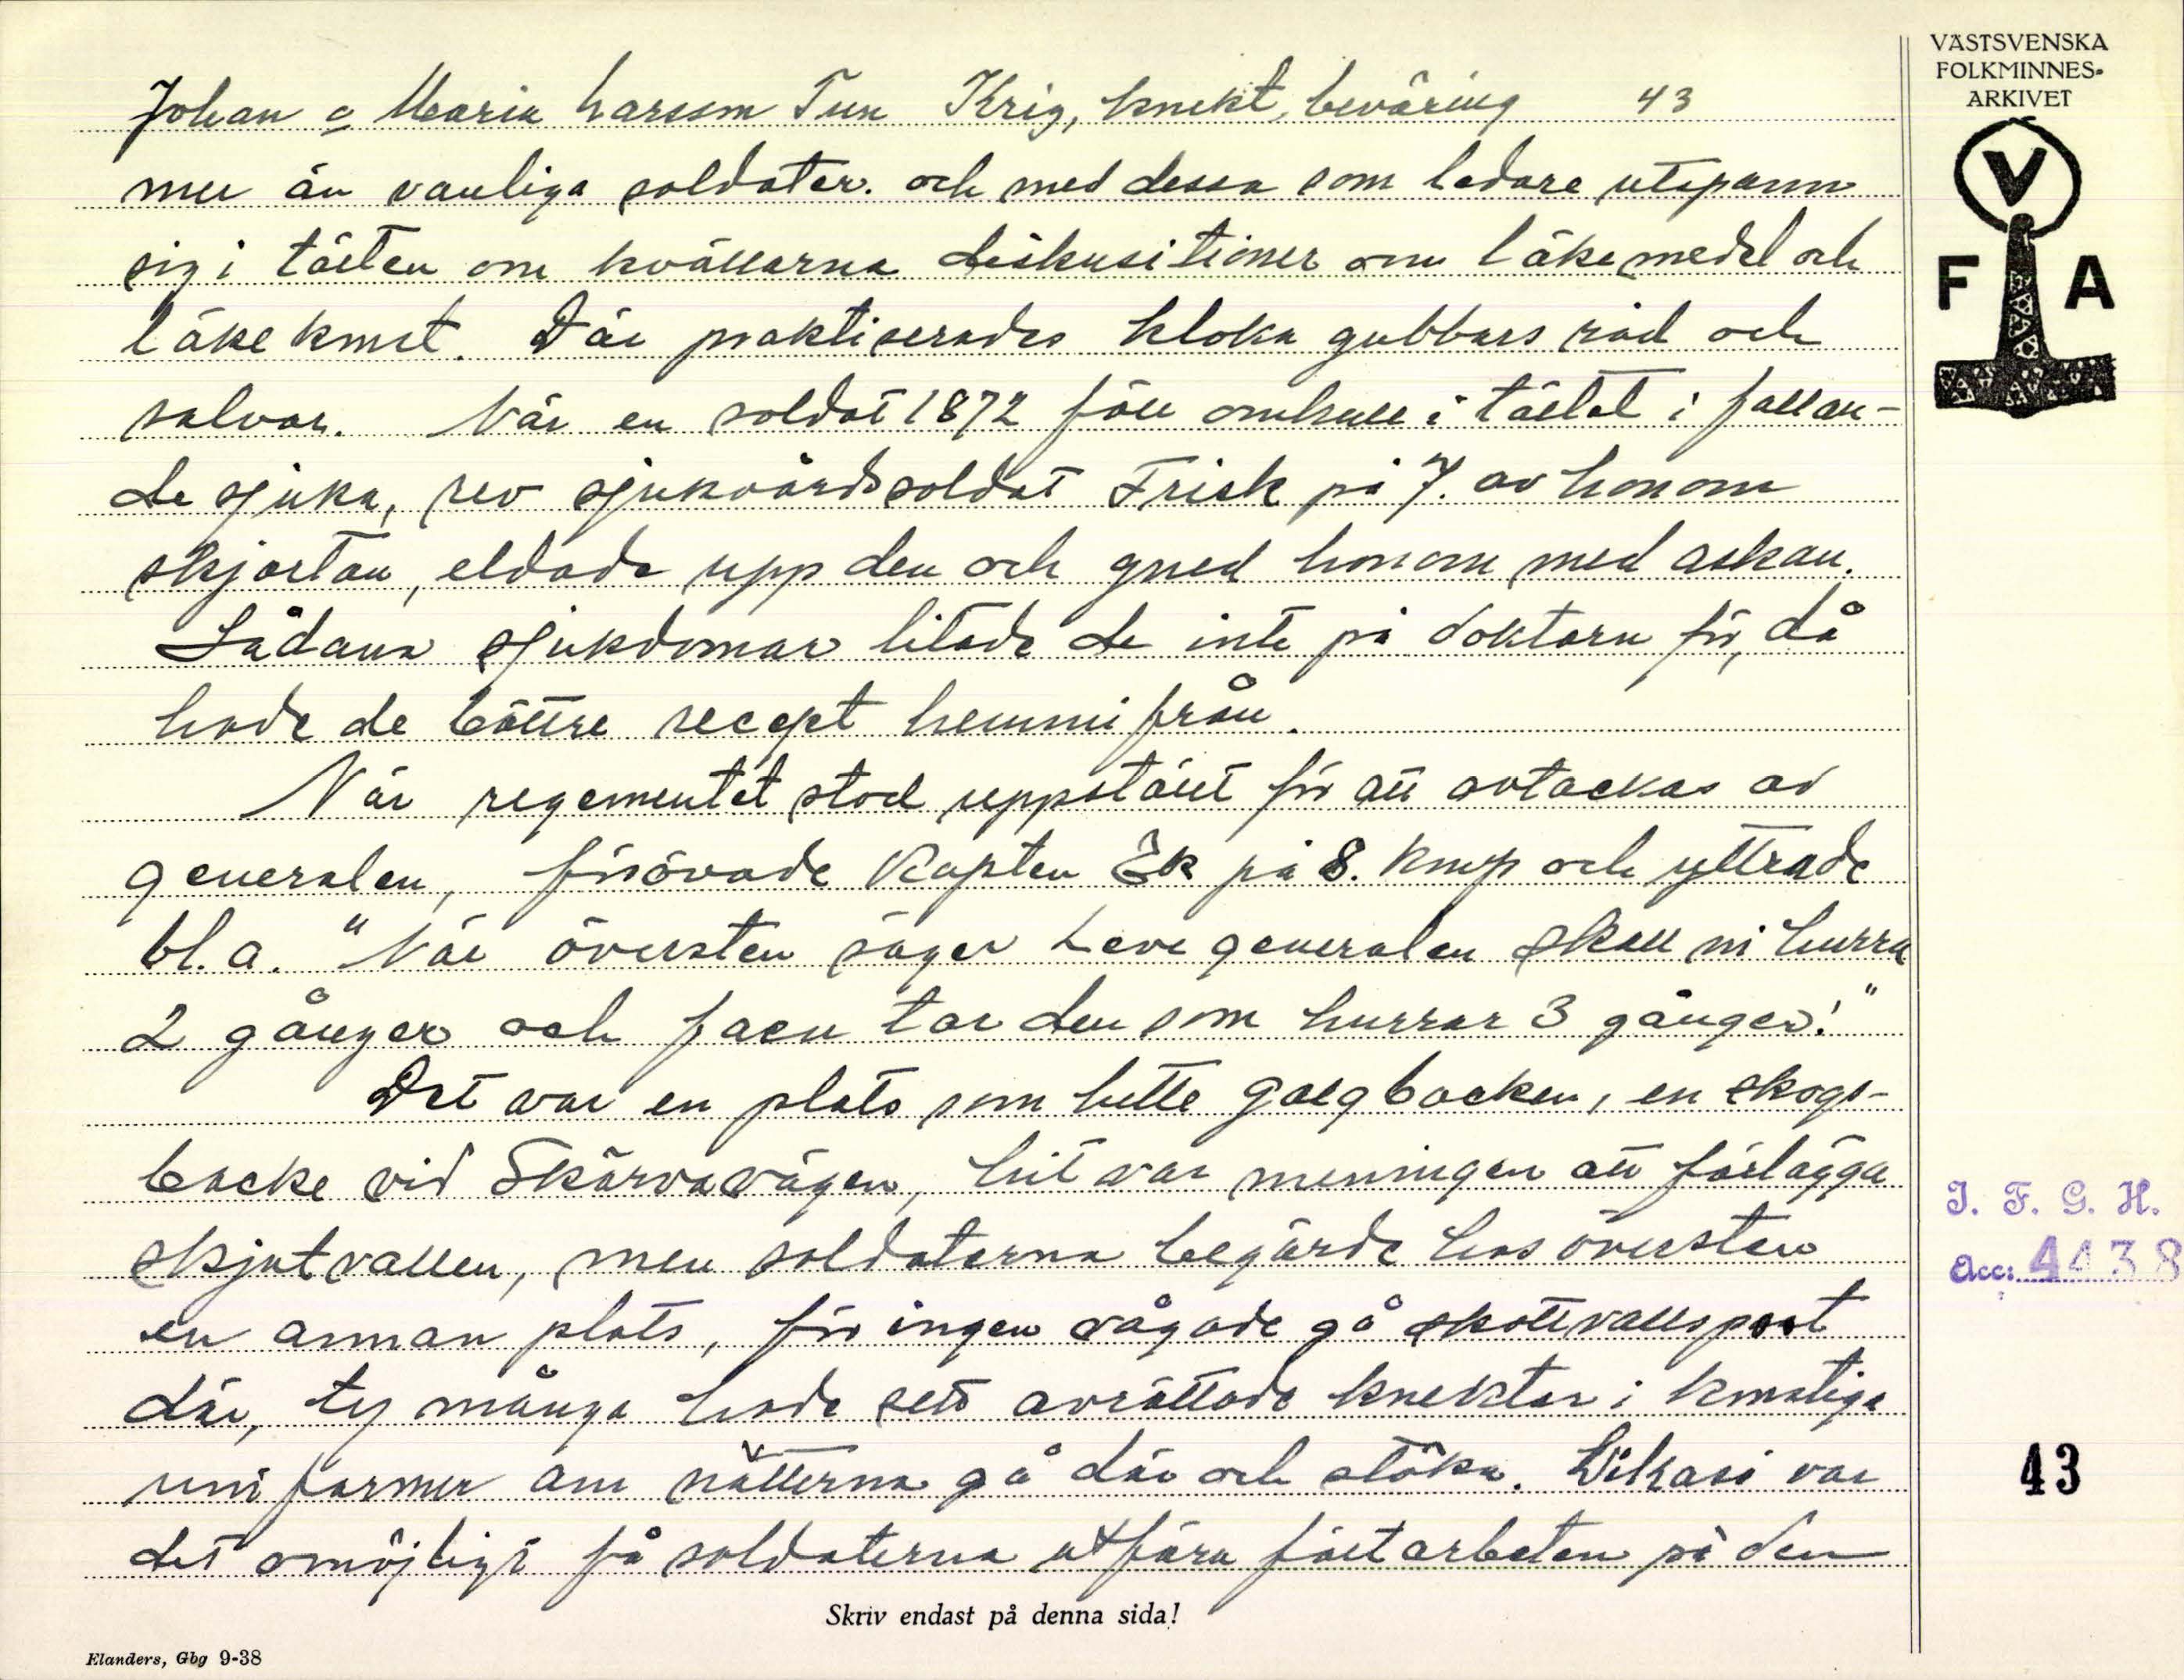 Johan o Maria Larsson Tun Krig, knekt, beväring 43
mer än vanliga soldater. och med dessa som ledare utspann
sig i tälten om kvällarna diskusitioner om läkemedel och
läkekonst. Där praktiserades kloka gubbars råd och
salvor. När en soldat 1872 föll omkull i tältet i fallan-
de sjuka, rev sjukvårdssoldat Frisk på 7. av honom
skjortan, eldade upp den och gned honom med askan.
Sådana sjukdomar litade de inte på doktorn för, då
hade de bättre recept hemmifrån.
När regementet stod uppställt för att avtackas av
generalen, förövade kapten Ek på 8. komp och yttrade
bl.a. "När översten säger Leve generalen skall ni hurra
2 gånger och faen tar den som hurrar 3 gånger!"
Det var en plats som hette Galgbacken, en skogs-
backe vid Skärvavägen, hit var meningen att förlägga
skjutvallen, men soldaterna begärde hos översten
en annan plats, för ingen vågade gå skottvallspost
där, ty många hade sett avrättade knektar i konstiga
uniformer om nätterna gå där och stöka. Likaså var
det omöjligt få soldaterna utföra fältarbeten på den
Skriv endast på denna sida!
Elanders, Gbg 9-38
VÄSTSVENSKA
FOLKMINNES-
ARKIVET
V
F A
I. F. G. H.
Acc: 4438
43